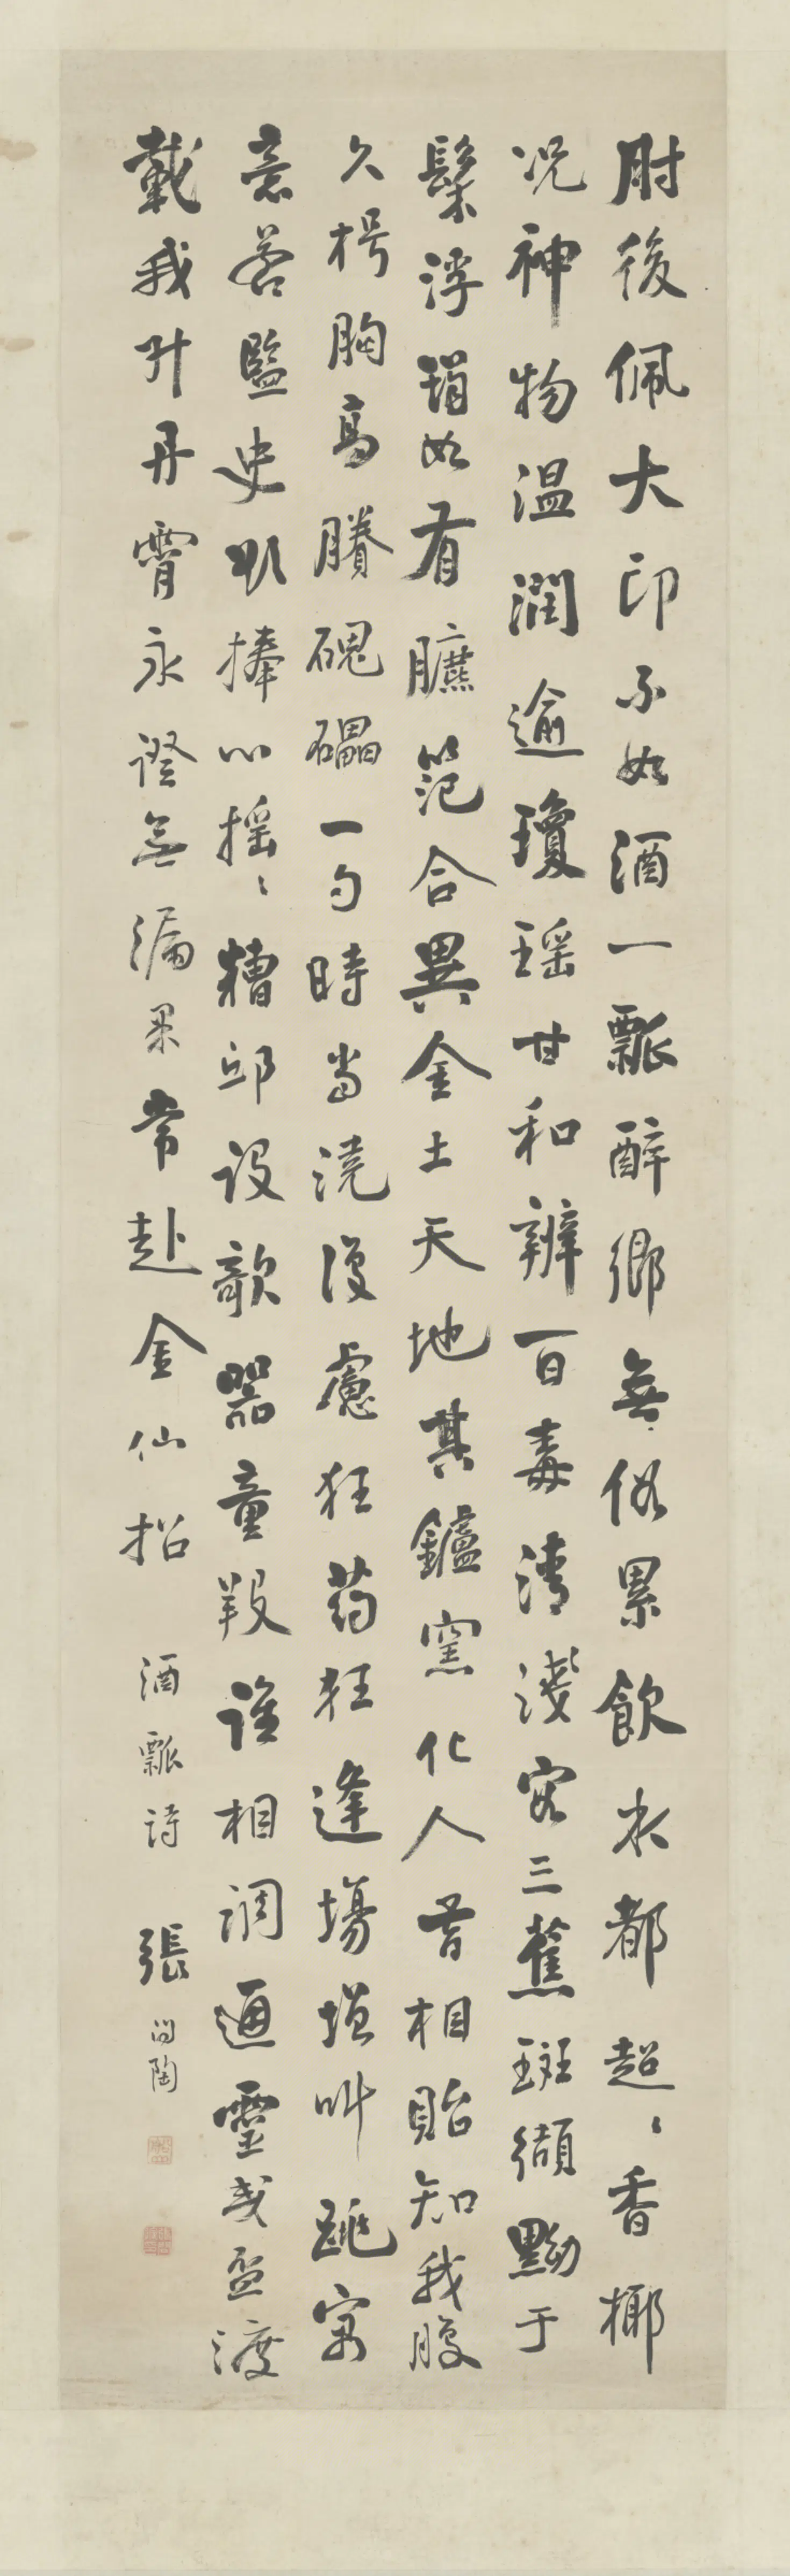 肘後佩大印不如酒一瓢醉鄉無俗累飲水都超〻香椰
况神物温潤逾瓊瑶甘和辨百毒清淺容三蕉斑纈黝于
髹浮如有臕范合異金土天地其鑪窯化人昔相貽知我腹
久枵胸高賸磈礧一勺時當澆復慮狂药狂逢場增叫跳寓
意若監史以捧心摇〻糟邱設欹器童羖誰相調通靈或盃渡
載我升丹霄永證無漏果常赴金仙招 酒瓢詩 張問陶